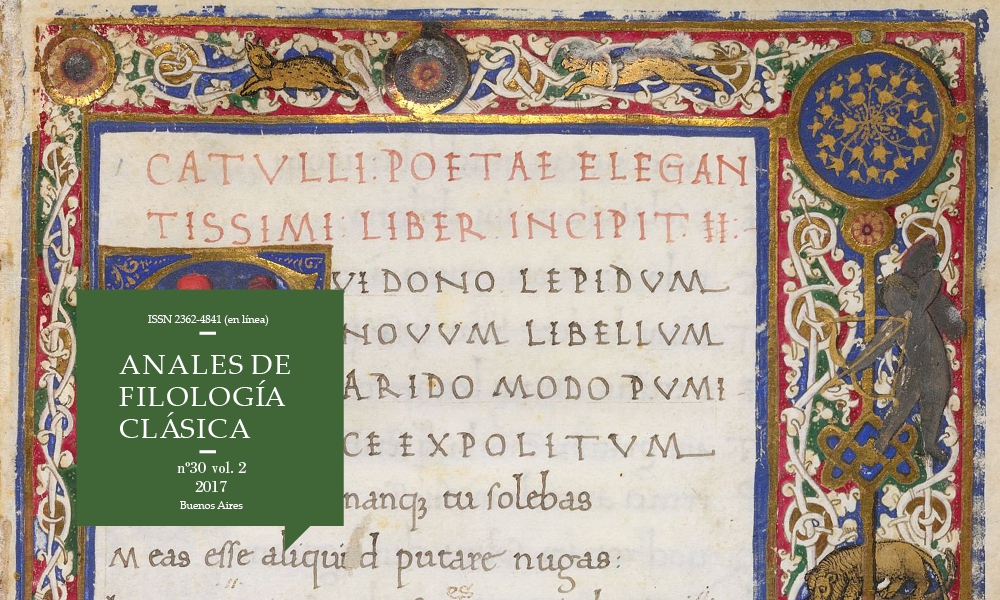 CATVLLI: POETAE ELEGAN
TISSIMI LIBER INCIPIT II:
VI DONO LEPIDVM
NOVVM LIBELLVM
ARIDO MODO PVMI
CE EXPOLITVM
namqꝫ tu solebas
Meas esse aliquid putare nugas:
ISSN 2362-4841 (en línea)
ANALES DE
FILOLOGÍA
CLÁSICA
nº30 vol. 2
2017
Buenos Aires